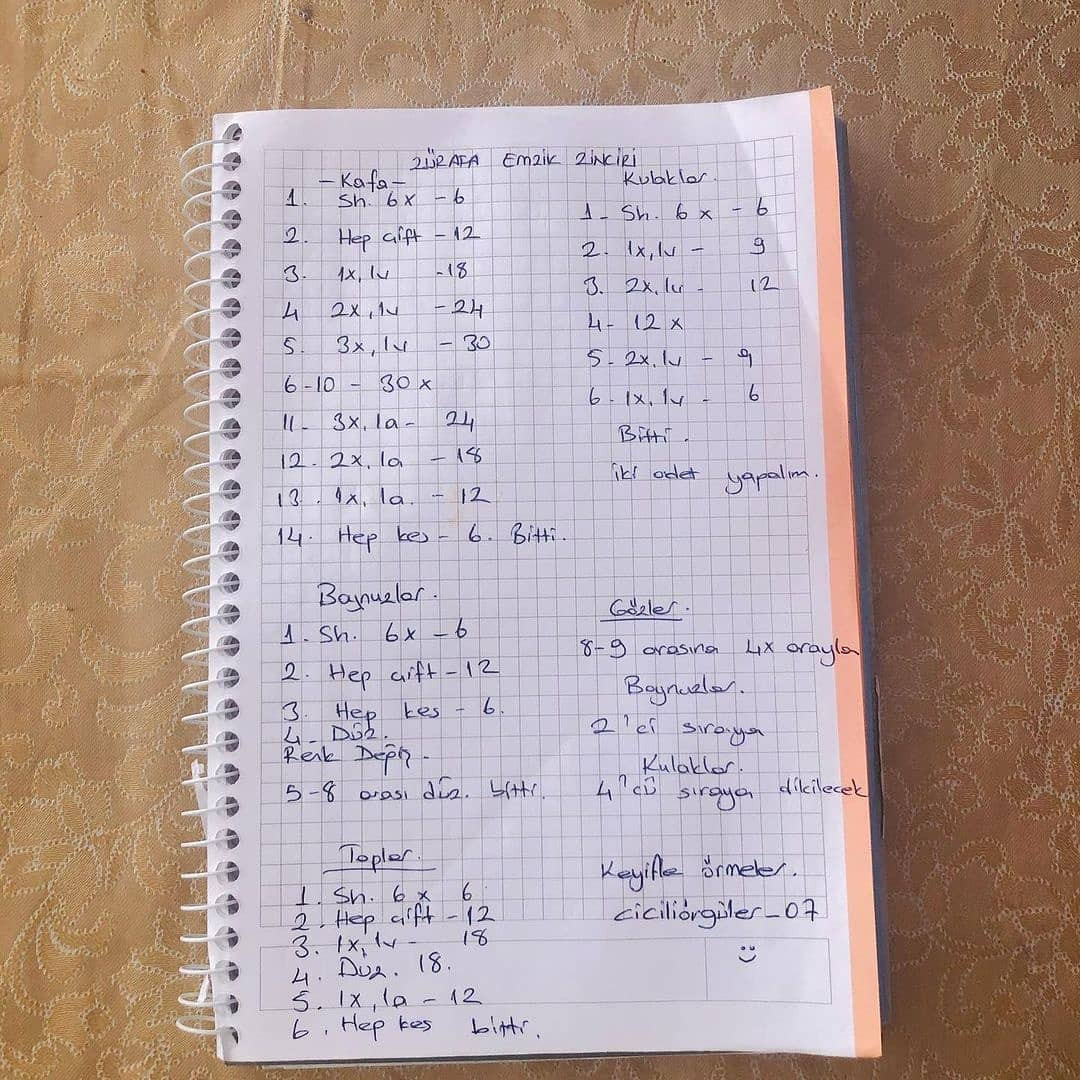 ZÜRAFA EMZİK ZİNCİRİ
- Kafa -
1. Sh. 6x - 6
2. Hep çift - 12
3. 1x, 1v - 18
4 2x, 1v - 24
5. 3x, 1v - 30
6-10 - 30x
11- 3x, 1a - 24
12. 2x, 1a - 18
13. 1x, 1a. - 12
14. Hep kes - 6. Bitti.
Kulaklar.
1- Sh. 6x - 6
2. 1x, 1v - 9
3. 2x, 1v - 12
4- 12x
5- 2x, 1v - 9
6- 1x, 1v - 6
Bitti.
iki adet yapalım.
Boynuzlar.
1. Sh. 6x - 6
2. Hep çift - 12
3. Hep kes - 6.
4- Düz.
Renk Değiş.
5-8 arası düz. bitti.
Gözler.
8-9 arasına 4x arayla
Boynuzlar.
2'ci sıraya
Kulaklar.
4'cü sıraya dikilecek
Toplar.
1. Sh. 6x 6
2. Hep çift - 12
3. 1x, 1v - 18
4. Düz. 18.
5. 1x, 1a - 12
6. Hep kes bitti.
Keyifle örmeler.
ciciliörgüler_07